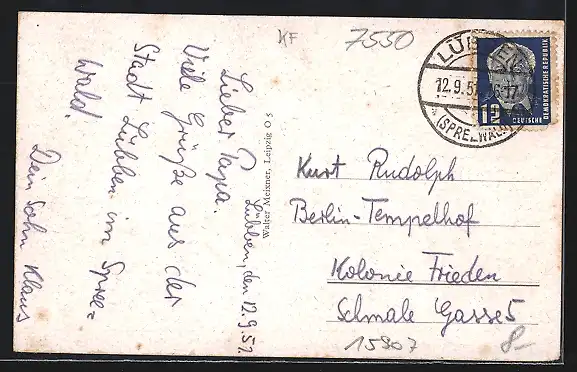 KF
7550
LÜBBEN
12.9.52
(SPREEWALD)
DEUTSCHE
DEMOKRATISCHE REPUBLIK
12
Lübben, den 12.9.52
Lieber Papa.
Viele Grüße aus der
Stadt Lübben im Spree=
wald!
Dein Sohn Klaus
Walter Meixner, Leipzig O 5
Kurt Rudolph
Berlin-Tempelhof
Kolonie Frieden
Schmale Gasse 5
15907
8-